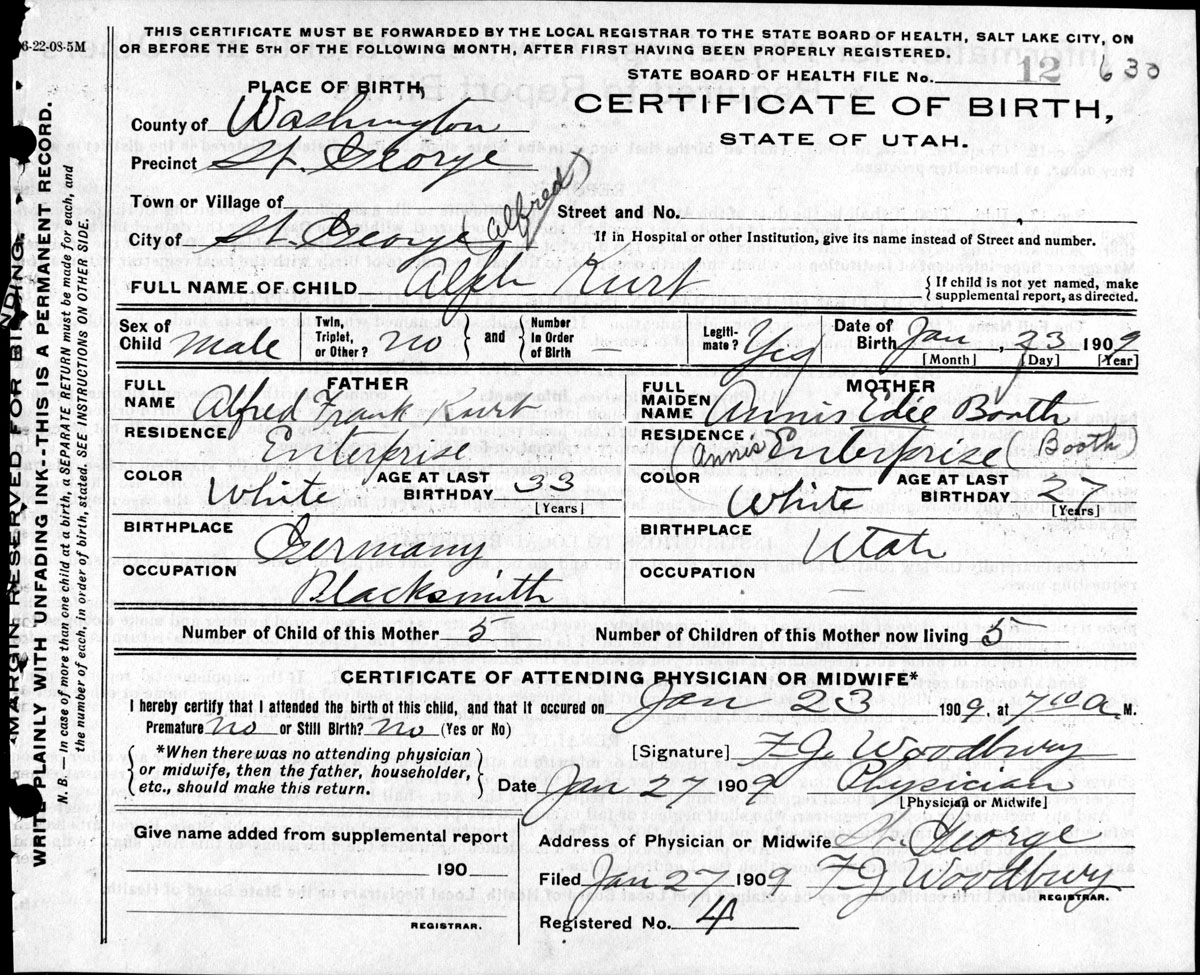 6-22-08-5M
THIS CERTIFICATE MUST BE FORWARDED BY THE LOCAL REGISTRAR TO THE STATE BOARD OF HEALTH, SALT LAKE CITY, ON
OR BEFORE THE 5TH OF THE FOLLOWING MONTH, AFTER FIRST HAVING BEEN PROPERLY REGISTERED.
STATE BOARD OF HEALTH FILE No. 12 630
PLACE OF BIRTH
CERTIFICATE OF BIRTH,
STATE OF UTAH.
County of Washington
Precinct St. George
Town or Village of
Street and No.
City of St. George (Alfred)
If in Hospital or other Institution, give its name instead of Street and number.
FULL NAME OF CHILD Kurt
If child is not yet named, make
supplemental report, as directed.
Sex of Child male
Twin, Triplet, or Other? no
and
Number In Order of Birth
Legiti-mate? Yes
Date of Birth Jan, 23 1909
[Month] [Day] [Year]
FATHER
FULL NAME Alfred Frank Kurt
RESIDENCE Enterprise
COLOR White
AGE AT LAST BIRTHDAY 33
[Years]
BIRTHPLACE Germany
OCCUPATION Blacksmith
MOTHER
FULL MAIDEN NAME Annis Edie Booth
RESIDENCE Enterprise
(Annis Booth)
COLOR White
AGE AT LAST BIRTHDAY 27
[Years]
BIRTHPLACE Utah
OCCUPATION
Number of Child of this Mother 5
Number of Children of this Mother now living 5
CERTIFICATE OF ATTENDING PHYSICIAN OR MIDWIFE*
I hereby certify that I attended the birth of this child, and that it occured on Jan 23 1909, at 7 00 a. M.
Premature no or Still Birth? no (Yes or No)
*When there was no attending physician
or midwife, then the father, householder,
etc., should make this return.
[Signature] F. J. Woodbury
Date Jan 27 1909 Physician
[Physician or Midwife]
Give name added from supplemental report
190
REGISTRAR.
Address of Physician or Midwife St. George
Filed Jan 27 1909 F J Woodbury
REGISTRAR.
Registered No. 4
MARGIN RESERVED FOR BINDING
WRITE PLAINLY WITH UNFADING INK--THIS IS A PERMANENT RECORD.
N. B.— In case of more than one child at a birth, a SEPARATE RETURN must be made for each, and
the number of each, in order of birth, stated. SEE INSTRUCTIONS ON OTHER SIDE.